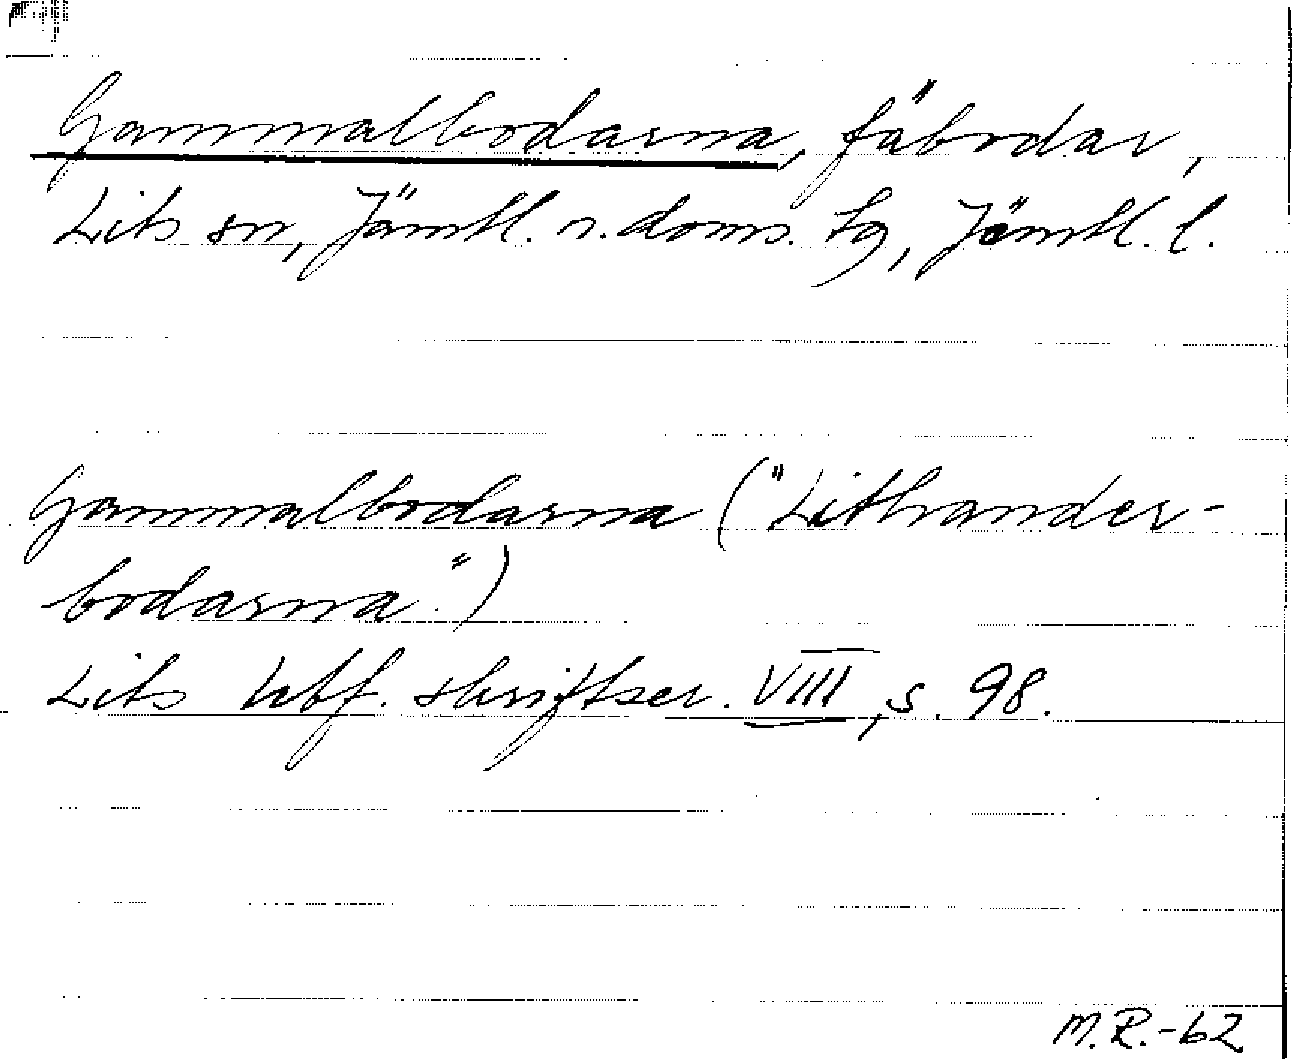 Gammalbodarna, fäbodar,
Lits sn, Jämtl. n. doms. tg, Jämtl. l.
Gammalbodarna ("Lithander-
bodarna")
Lits hbf. skriftser. VIII, s. 98.
M.R.-62